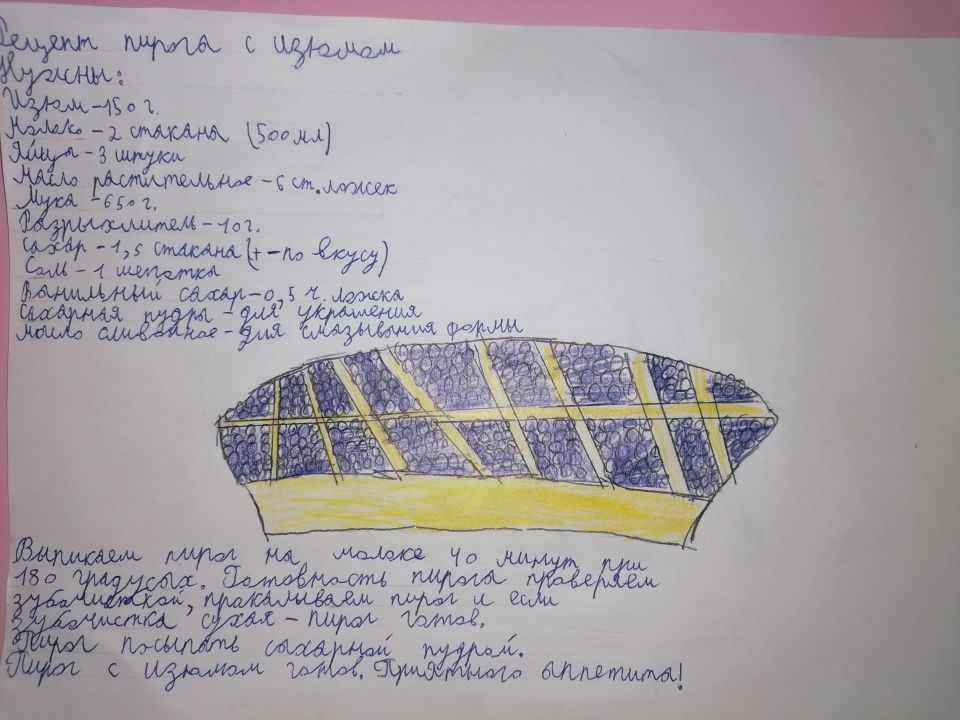 Рецепт пирога с изюмом
Нужны:
Изюм-150г.
Молоко-2 стакана (500мл)
Яйца-3 штуки
Масло растительное-6 ст.ложек
Мука-650г.
Разрыхлитель-10г.
Сахар-1,5 стакана(+-по вкусу)
Соль-1 щепотка
Ванильный сахар-0,5 ч.ложка
Сахарная пудры-для украшения
Масло сливочное-для смазывания формы
Выпикаем пирог на молоке 40 минут при
180 градусых. Готовность пирога проверяем
зубочисткой, пракалываем пирог и если
зубочистка сухая-пирог готов.
Пирог посыпать сахарной пудрой.
Пирог с изюмом готов. Приятного аппетита!